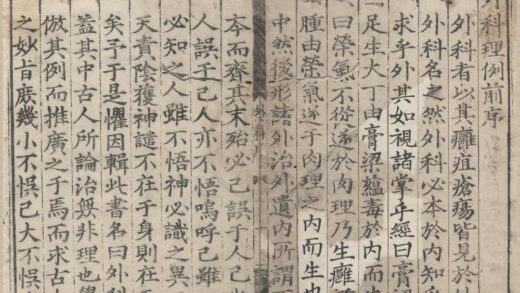 外科理例前序
外科者以其癰疽瘡瘍皆見於
外科名之然外科必本於內知
求乎外其如視諸掌乎經曰膏
足生大丁由膏梁蘊毒於內而
曰榮氣不從逆於肉理乃生癰
腫由榮氣逆于肉理之內而生也
中然後形諸外治外遺內所謂
夲而齊其末殆必己誤于人己
人誤于己人亦不悟嗚呼己雖
必知之人雖不悟神必識之異
天責陰神譴不在于身則在
矣予于是懼因輯此書名曰外科
蓋其中古人所論治無非理也
倣其例而推廣之于焉而求古
之妙旨庶幾小不悞己大不悞